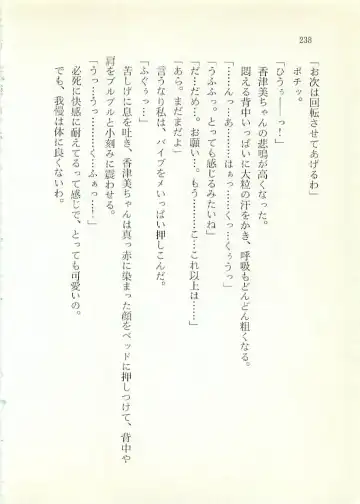 238
「お次は回転させてあげるわ」
ポチッ。
「ひうぅ――っ！」
香津美ちゃんの悲鳴が高くなった。
悶える背中いっぱいに大粒の汗をかき、呼吸もどんどん粗くなる。
「……んっ…あ………はぁっ……くっ…くぅうっ」
「うふふっ。とっても感じるみたいね」
「だ…だめ…。お願い…。もう……こ…これ以上は…」
「あら。まだまだよ」
言うなり私は、バイブをめいっぱい押しこんだ。
「ふぐぅっ…」
苦しげに息を吐き、香津美ちゃんは真っ赤に染まった顔をベッドに押しつけて、背中や
肩をブルブルと小刻みに震わせる。
「うっ……うっ………く…ふぁっ…！」
必死に快感に耐えてるって感じで、とっても可愛いの。
でも、我慢は体に良くないわ。